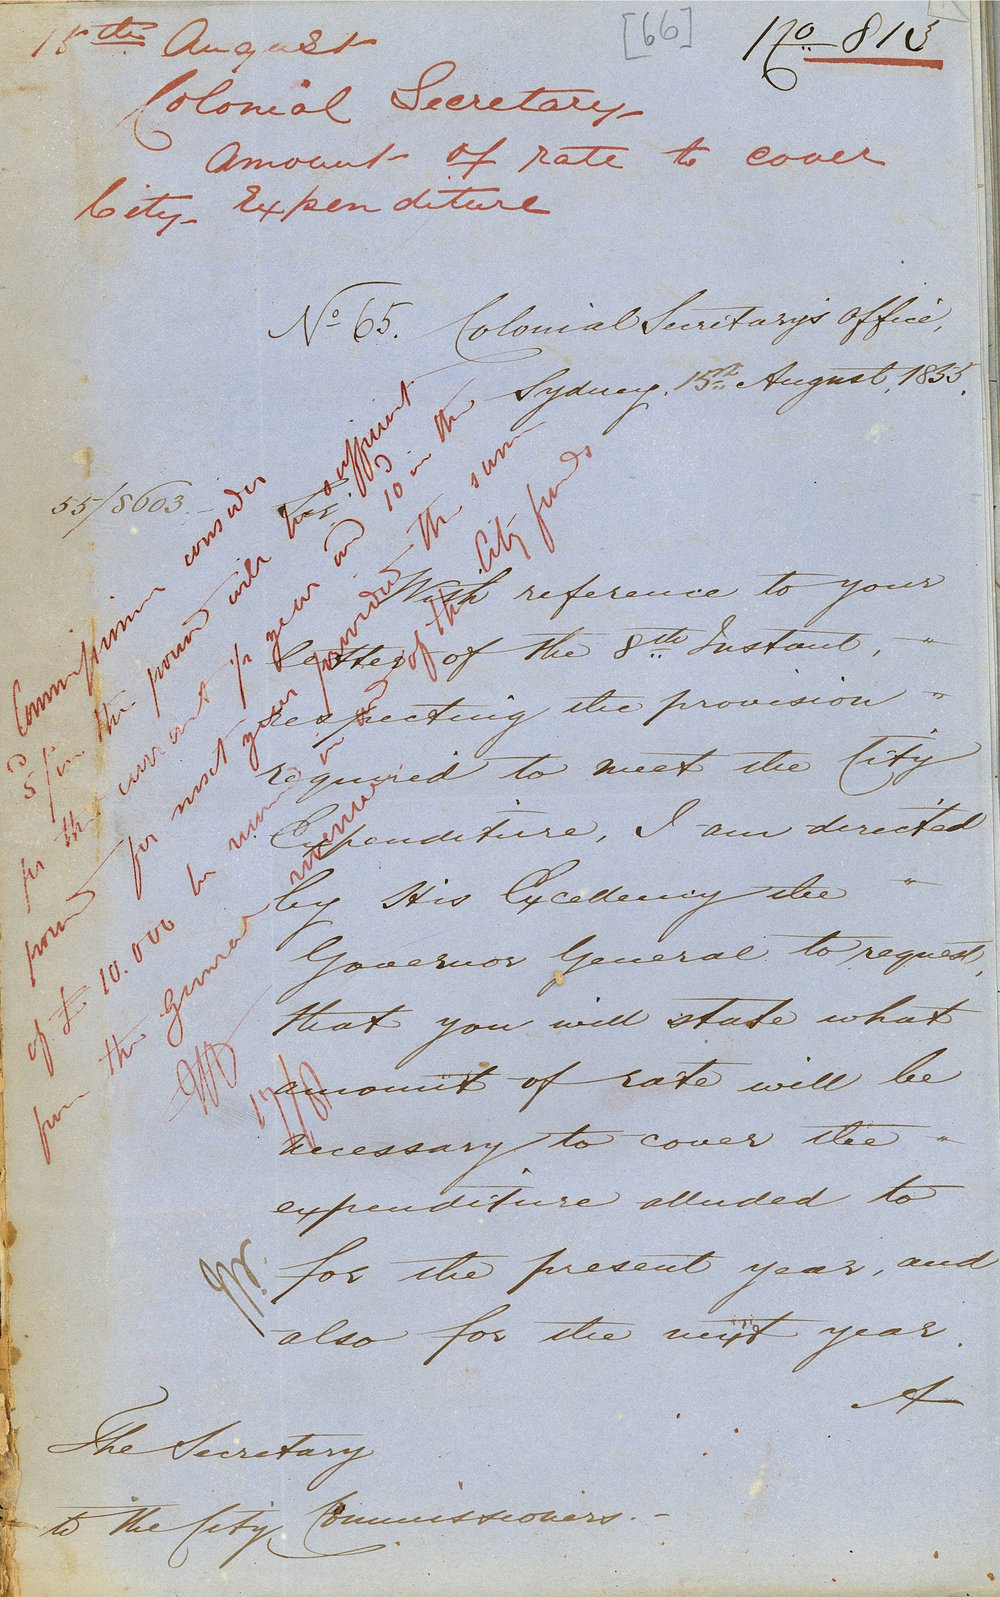 [66]
No 813
15th August
Colonial Secretary
Amount of rate to cover
City Expenditure
No 65. Colonial Secretary's Office,
Sydney, 15th August, 1855.
55/8603.
Sir,
With reference to your
letter of the 8th Instant, "
respecting the provision "
required to meet the City
Expenditure, I am directed
by His Excellency the "
Governor General to request,
that you will state what
amount of rate will be
necessary to cover the "
expenditure alluded to
for the present year, and
also for the next year.
A
The Secretary
to the City Commissioners.-
Commissioners consider
5/ in the pound will be sufficient
for the current 1/2 year and 10d in the
pound for next year provided the sum
of £10.000 be in aid of the City funds
from the General revenue
17/8